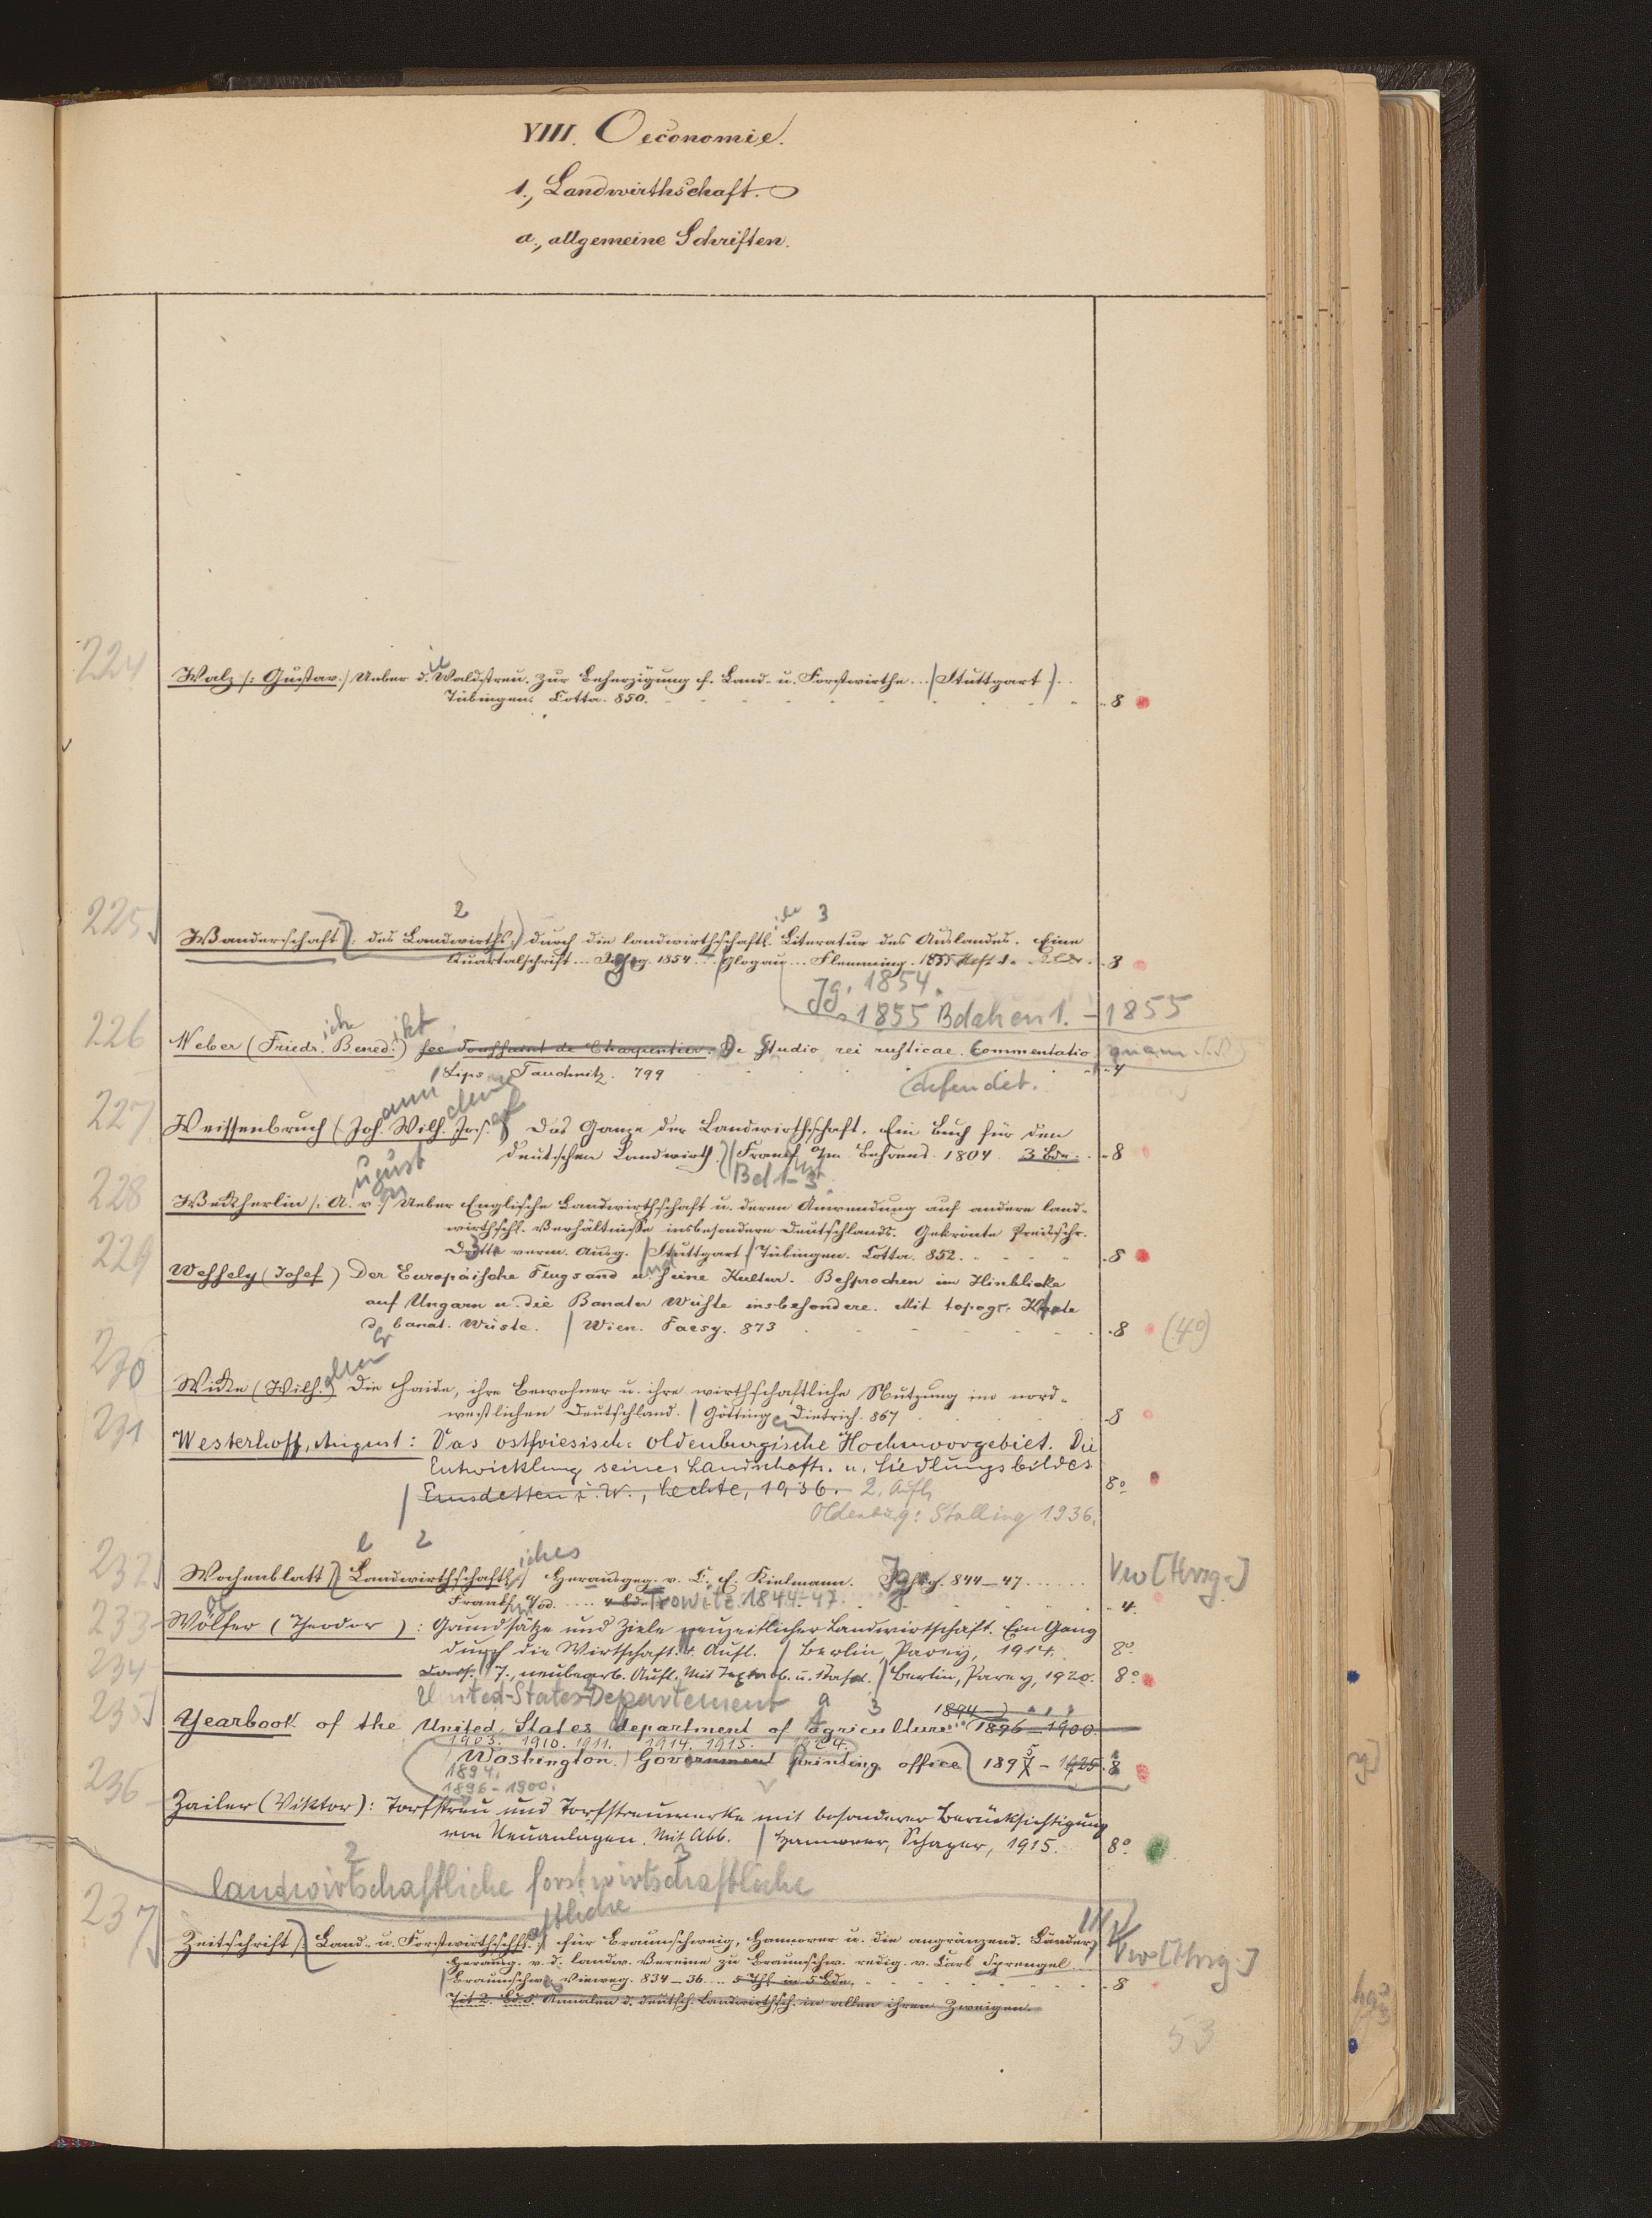 VIII. Oeconomie.
1., Landwirthschaft.
a., allgemeine Schriften.
224
Walz /: Gustav./ Ueber die Waldstreu. Zur Beherzigung f. Land- u. Forstwirthe... (Stuttgart)..
Tübingen. Cotta. 850. 8
2 3
225
Wanderschaft /: des Landwirths:/ durch die landwirthschaftl. Literatur des Auslandes. Eine
Quartalschrift... Jg. 1854... Glogau... Flemming. 1855 Heft 1. 8
Jg. 1854.
1855 Bdchen 1. - 1855
226
Weber (Friedrich Benedikt) see Toussaint de Charpentier. De Studio rei rusticae. Commentatio quam
Lips. Tauchnitz. 799 4
defendet.
227
Weissenbruch (Johann Wilhelm Josef) Das Ganze der Landwirthschaft. Ein Buch für den
deutschen Landwirth. Frankf. a/m Behrend. 1804. 3 Bde. 8
Bd 1-3.
228
Weckherlin /: August v./ Ueber Englische Landwirthschaft u. deren Anwendung auf andere land-
wirthschl. Verhältnisse insbesondere Deutschlands. Gekrönte Preisschr.
Dritte verm. Ausg. Stuttgart / Tübingen. Cotta. 852. 8
229
Wessely (Josef) Der Europäische Flugsand und seine Kultur. Besprochen im Hinblicke
auf Ungarn u. die Banater Wüste insbesondere. Mit topogr. Karte
der banat. Wüste. / Wien. Faesy. 873 8 (4°)
230
Wicke (Wilhelm) Die Haide, ihre Bewohner u. ihre wirthschaftliche Nutzung im nord-
westlichen Deutschland. / Göttingen Dietrich. 867 8
231
Westerhoff, August: Das ostfriesisch-oldenburgische Hochmoorgebiet. Die
Entwicklung seines Landschafts- u. Siedlungsbildes
Emsdetten i. W., Lechte, 1936. 2. Aufl. 8°
Oldenburg: Stalling 1936.
l 2
232
Wochenblatt /: Landwirthschaftliches:/ Herausgeg. v. C. F. Kielmann. Jg. 844–47...... Vw [Hrsg.]
Frankf. a/Od. .... 4 Bde. Trowitz. 1844-47. 4.
233
Wölfer (Theodor): Grundsätze und Ziele neuzeitlicher Landwirtschaft. Ein Gang
durch die Wirtschaft. Aufl. / Berlin, Parey, 1914. 8°
234
Dass. 7., neubearb. Aufl. Mit Textabb. u. 1 Tafel. / Berlin, Parey, 1920. 8°
United-States-Departement a 3 1894
235
Yearbook of the United States department of agriculture (1896–1900.
1903. 1910. 1911. 1914. 1915. 1924.
Washington. / Government printing office 1895 – 1925. 8
1894.
1896-1900.
236
Zailer (Viktor): Torfstreu und Torfstreuwerke mit besonderer Berücksichtigung
von Neuanlagen. Mit Abb. / Hannover, Schaper, 1915. 8°
2 3
landwirtschaftliche forstwirtschaftliche
237
Zeitschrift /: Land- u. Forstwirthschftl. aftliche:/ für Braunschweig, Hannover u. die angränzend. Länder,
Herausg. v. d. landw. Vereine zu Braunschw. redig. v. Carl Sprengel... Vw [Hrsg.]
Braunschw. Vieweg. 834–36... 5 Thl in 5 Bde. 8
Tit 2. Bd. 5 Annalen d. deutsch. Landwirthsch. in allen ihren Zweigen.
53